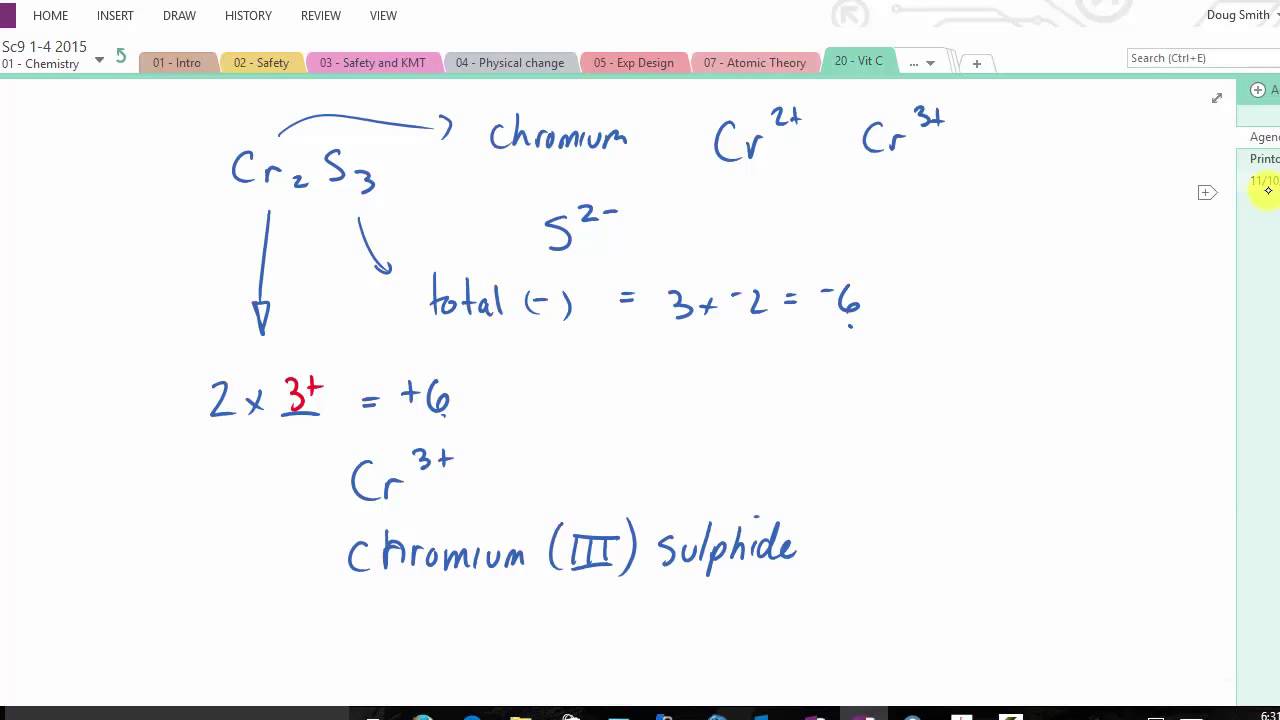 HOME INSERT DRAW HISTORY REVIEW VIEW Doug Smith
Sc9 1-4 2015
01 - Chemistry
01 - Intro 02 - Safety 03 - Safety and KMT 04 - Physical change 05 - Exp Design 07 - Atomic Theory 20 - Vit C ... +
Search (Ctrl+E)
Agen
Printo
11/10
Cr₂S₃ → chromium Cr²⁺ Cr³⁺
S²⁻
total (-) = 3 x -2 = -6
2 x 3+ = +6
Cr³⁺
chromium (III) sulphide
6:3